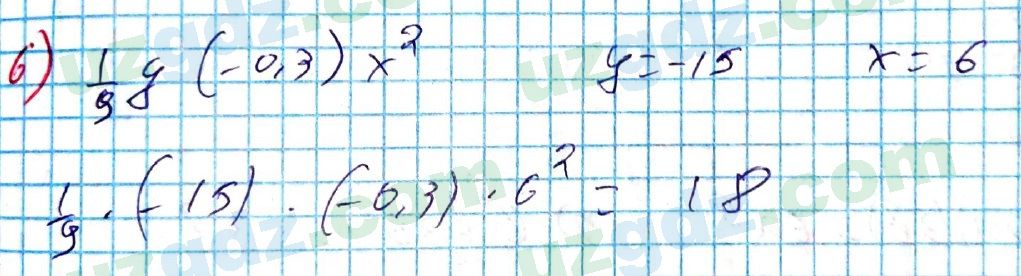 б) 1/9 y (-0,3) x² y = -15 x = 6
1/9 · (-15) · (-0,3) · 6² = 18
uzgdz.com